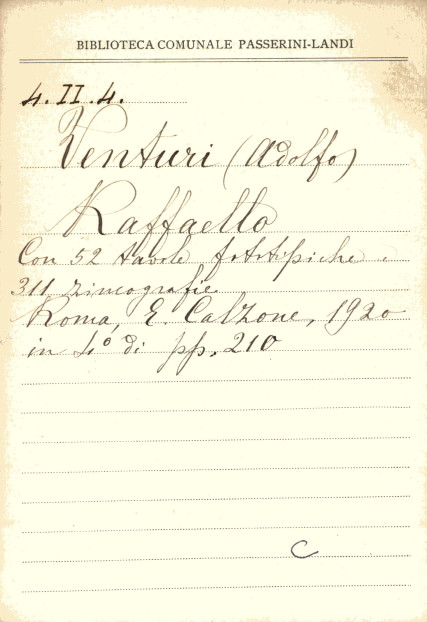 BIBLIOTECA COMUNALE PASSERINI-LANDI
4.II.4.
Venturi (Adolfo)
Raffaello
Con 52 tavole fototipiche e
311 zincografie
Roma, E. Calzone, 1920
in 4° di pp. 210
C